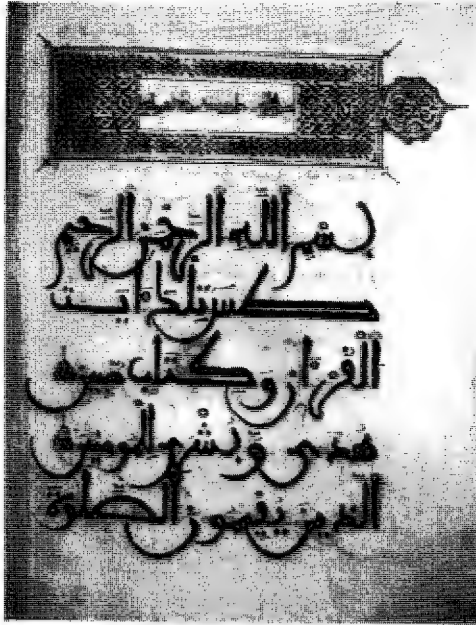 بسم الله الرحمن الرحيم
طس تلك ءايت
القرءان وكتاب مبين
هدى وبشرى للمومنين
الذين يقيمون الصلوة